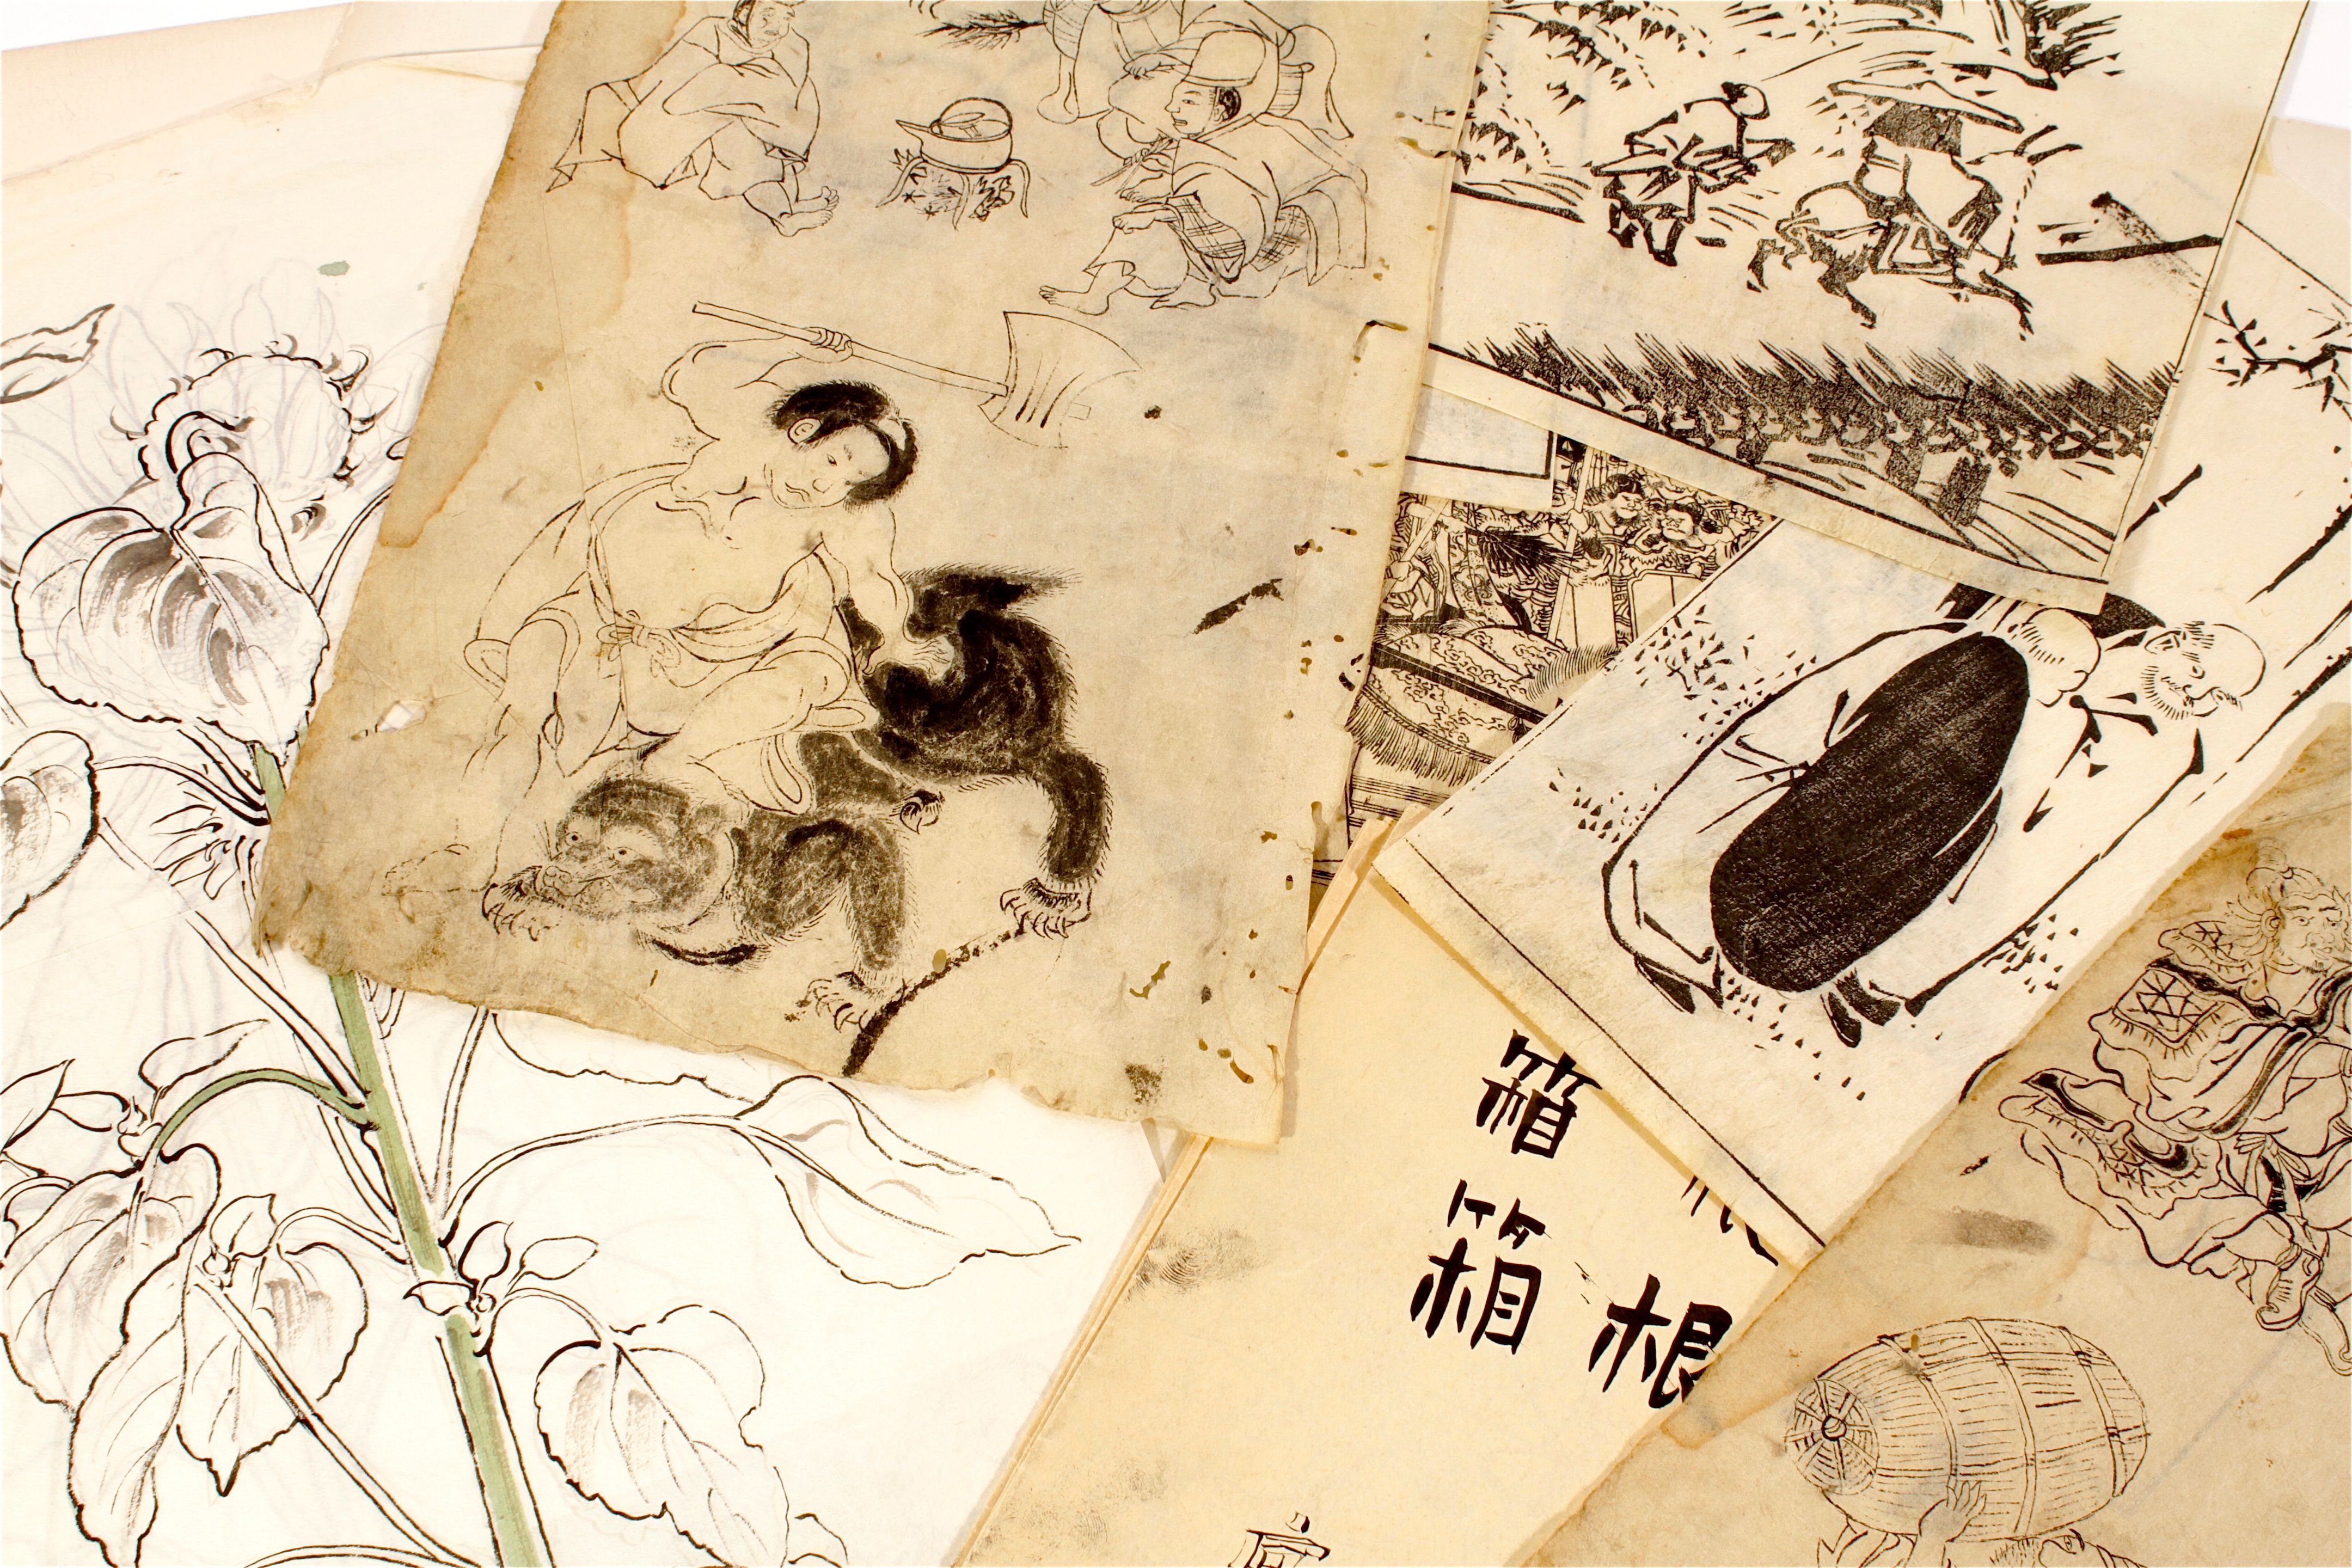 箱
箱根